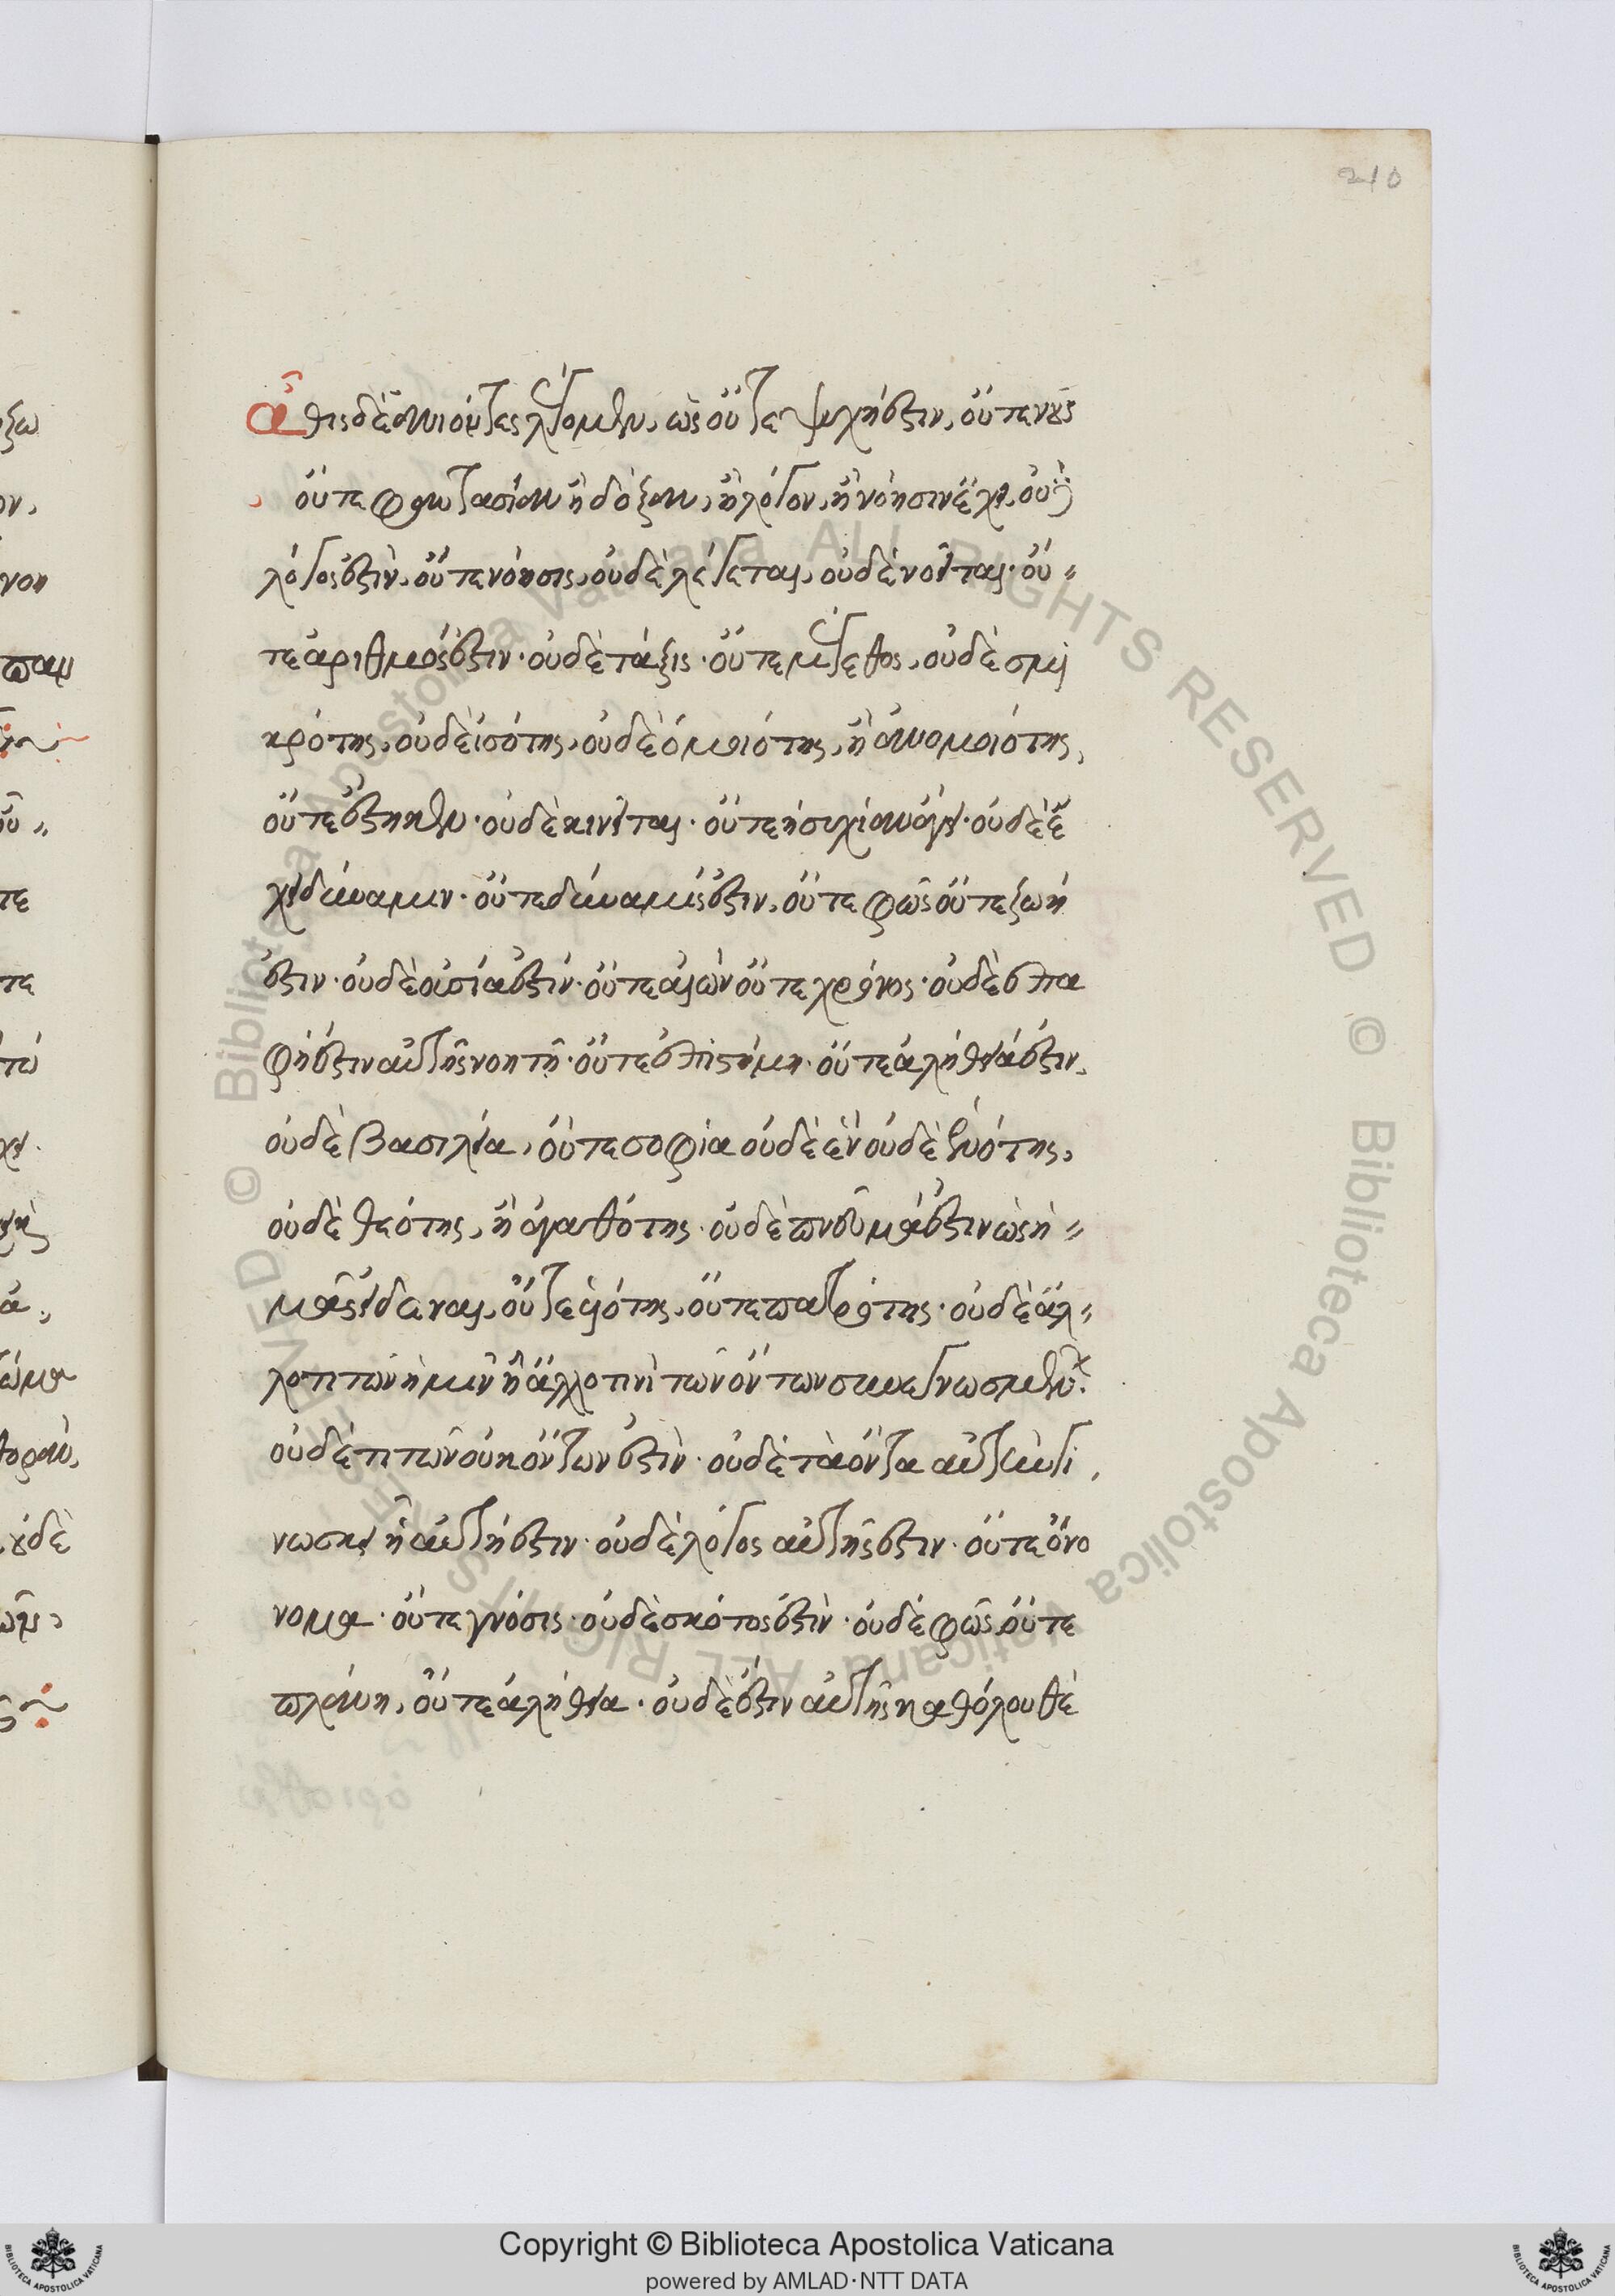 210
αὖθις δὲ ἀνιόντες λέγομεν, ὡς οὔτε ψυχή ἐστιν, οὔτε νοῦς
οὔτε φαντασίαν ἢ δόξαν, ἢ λόγον, ἢ νόησιν ἔχει, οὐδὲ
λόγος ἐστὶν, οὔτε νόησις, οὐδὲ λέγεται, οὐδὲ νοεῖται· οὔ-
τε ἀριθμός ἐστιν· οὐδὲ τάξις· οὔτε μέγεθος, οὐδὲ σμι
κρότης, οὐδὲ ἰσότης, οὐδὲ ὁμοιότης, ἢ ἀνομοιότης,
οὔτε ἕστηκεν· οὐδὲ κινεῖται· οὔτε ἡσυχίαν ἄγει· οὐδὲ ἔ
χει δύναμιν· οὔτε δύναμίς ἐστιν, οὔτε φῶς οὔτε ζωή
ἐστιν· οὐδὲ οὐσία ἐστίν· οὔτε αἰὼν οὔτε χρόνος· οὐδὲ ἐπα
φή ἐστιν αὐτῆς νοητῆ· οὔτε ἐπιστήμη· οὔτε ἀλήθειά ἐστιν,
οὐδὲ βασιλεία, οὔτε σοφία οὐδὲ ἓν οὐδὲ ἑνότης,
οὐδὲ θεότης, ἢ ἀγαθότης· οὐδὲ πνεῦμά ἐστιν ὡς ἡ-
μᾶς εἰδέναι, οὔτε υἱότης, οὔτε πατρότης· οὐδὲ ἄλ-
λο τι τῶν ἡμῖν ἢ ἄλλο τινὶ τῶν ὄντων συνεγνωσμένων·
οὐδέ τι τῶν οὐκ ὄντων ἐστὶν· οὐδὲ τὰ ὄντα αὐτὴν γι
νωσκει ᾗ αὐτή ἐστιν· οὐδὲ λόγος αὐτῆς ἐστιν· οὔτε ὄνο
νομα· οὔτε γνόσις· οὐδὲ σκότος ἐστὶν· οὐδέ φῶς οὔτε
πλάνη, οὔτε ἀλήθεια· οὐδὲ ἐστιν αὐτῆς καθόλου θέ
Copyright © Biblioteca Apostolica Vaticana
powered by AMLAD·NTT DATA